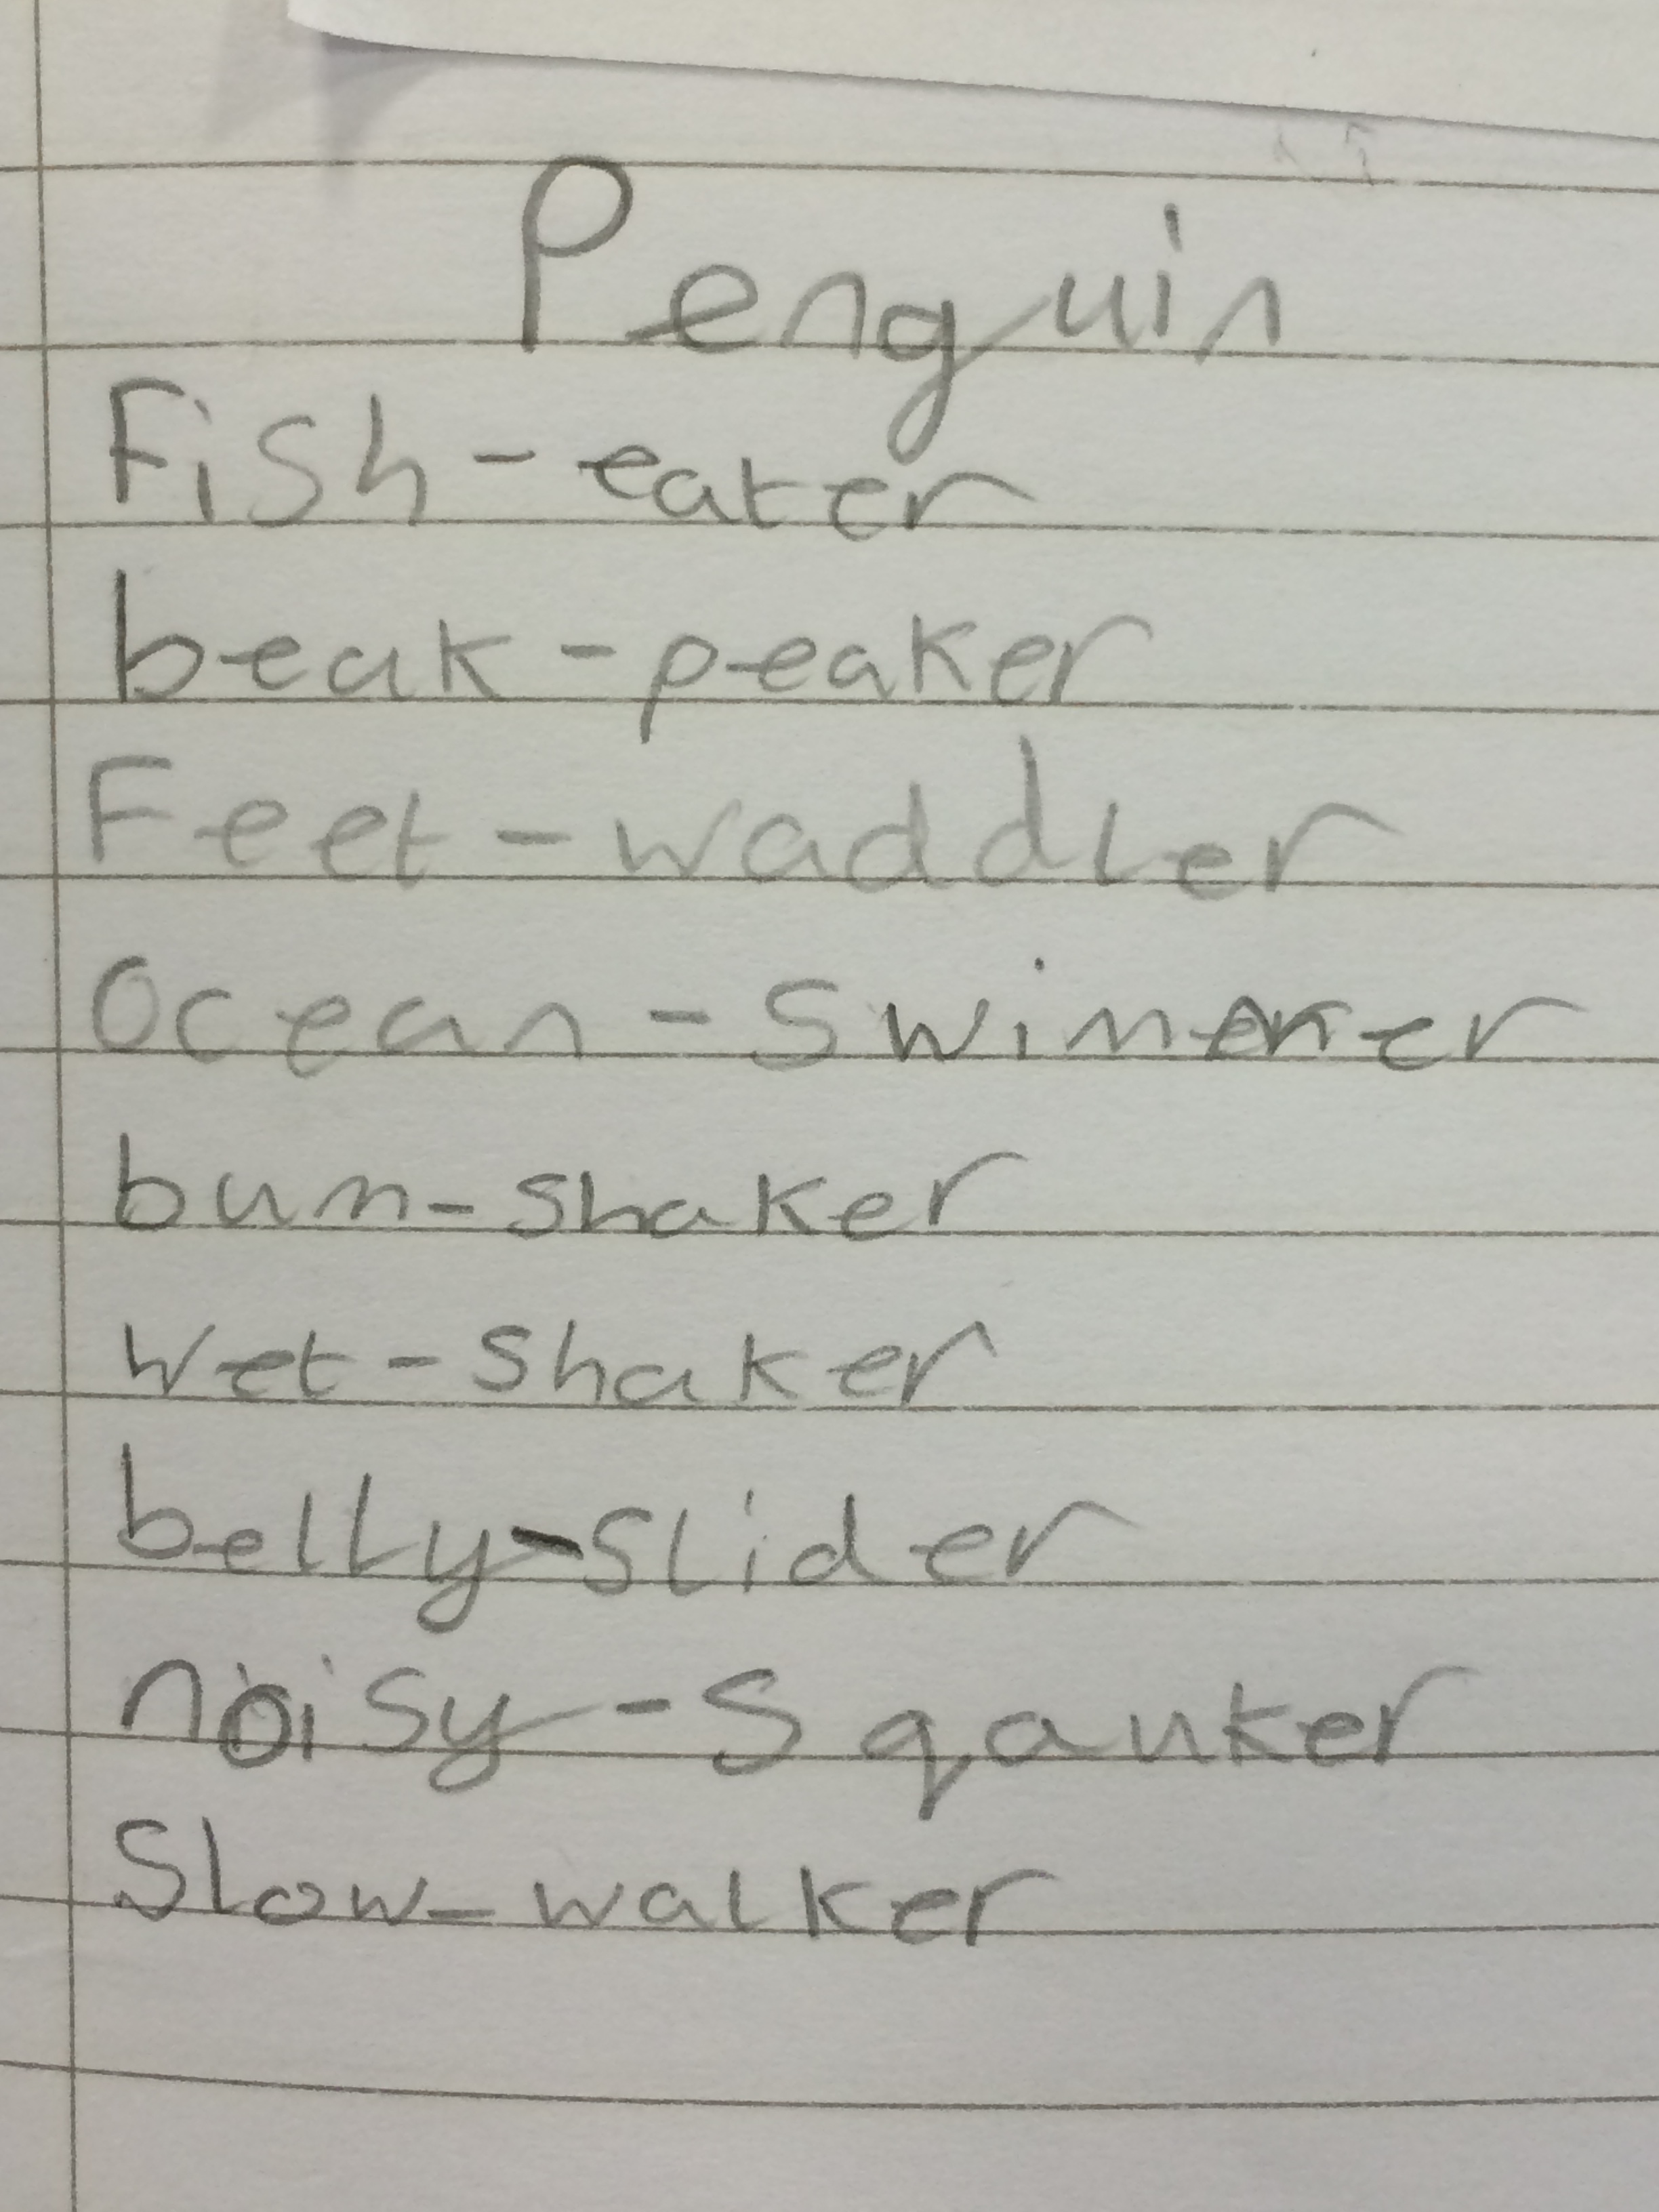 Penguin
Fish-eater
beak-peaker
Feet-waddler
Ocean-Swimmer
bum-shaker
Wet-shaker
belly-slider
noisy-Sqauker
Slow-walker